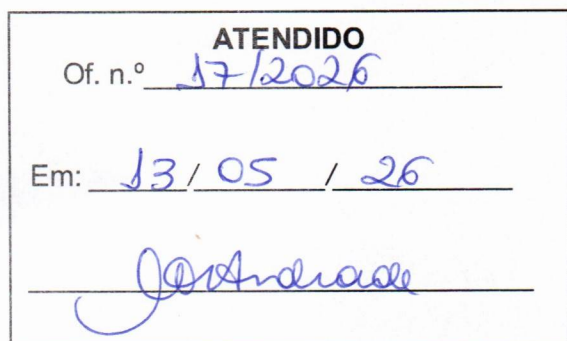 ATENDIDO
Of. n.º 17/2026
Em: 13 / 05 / 26
Andrade